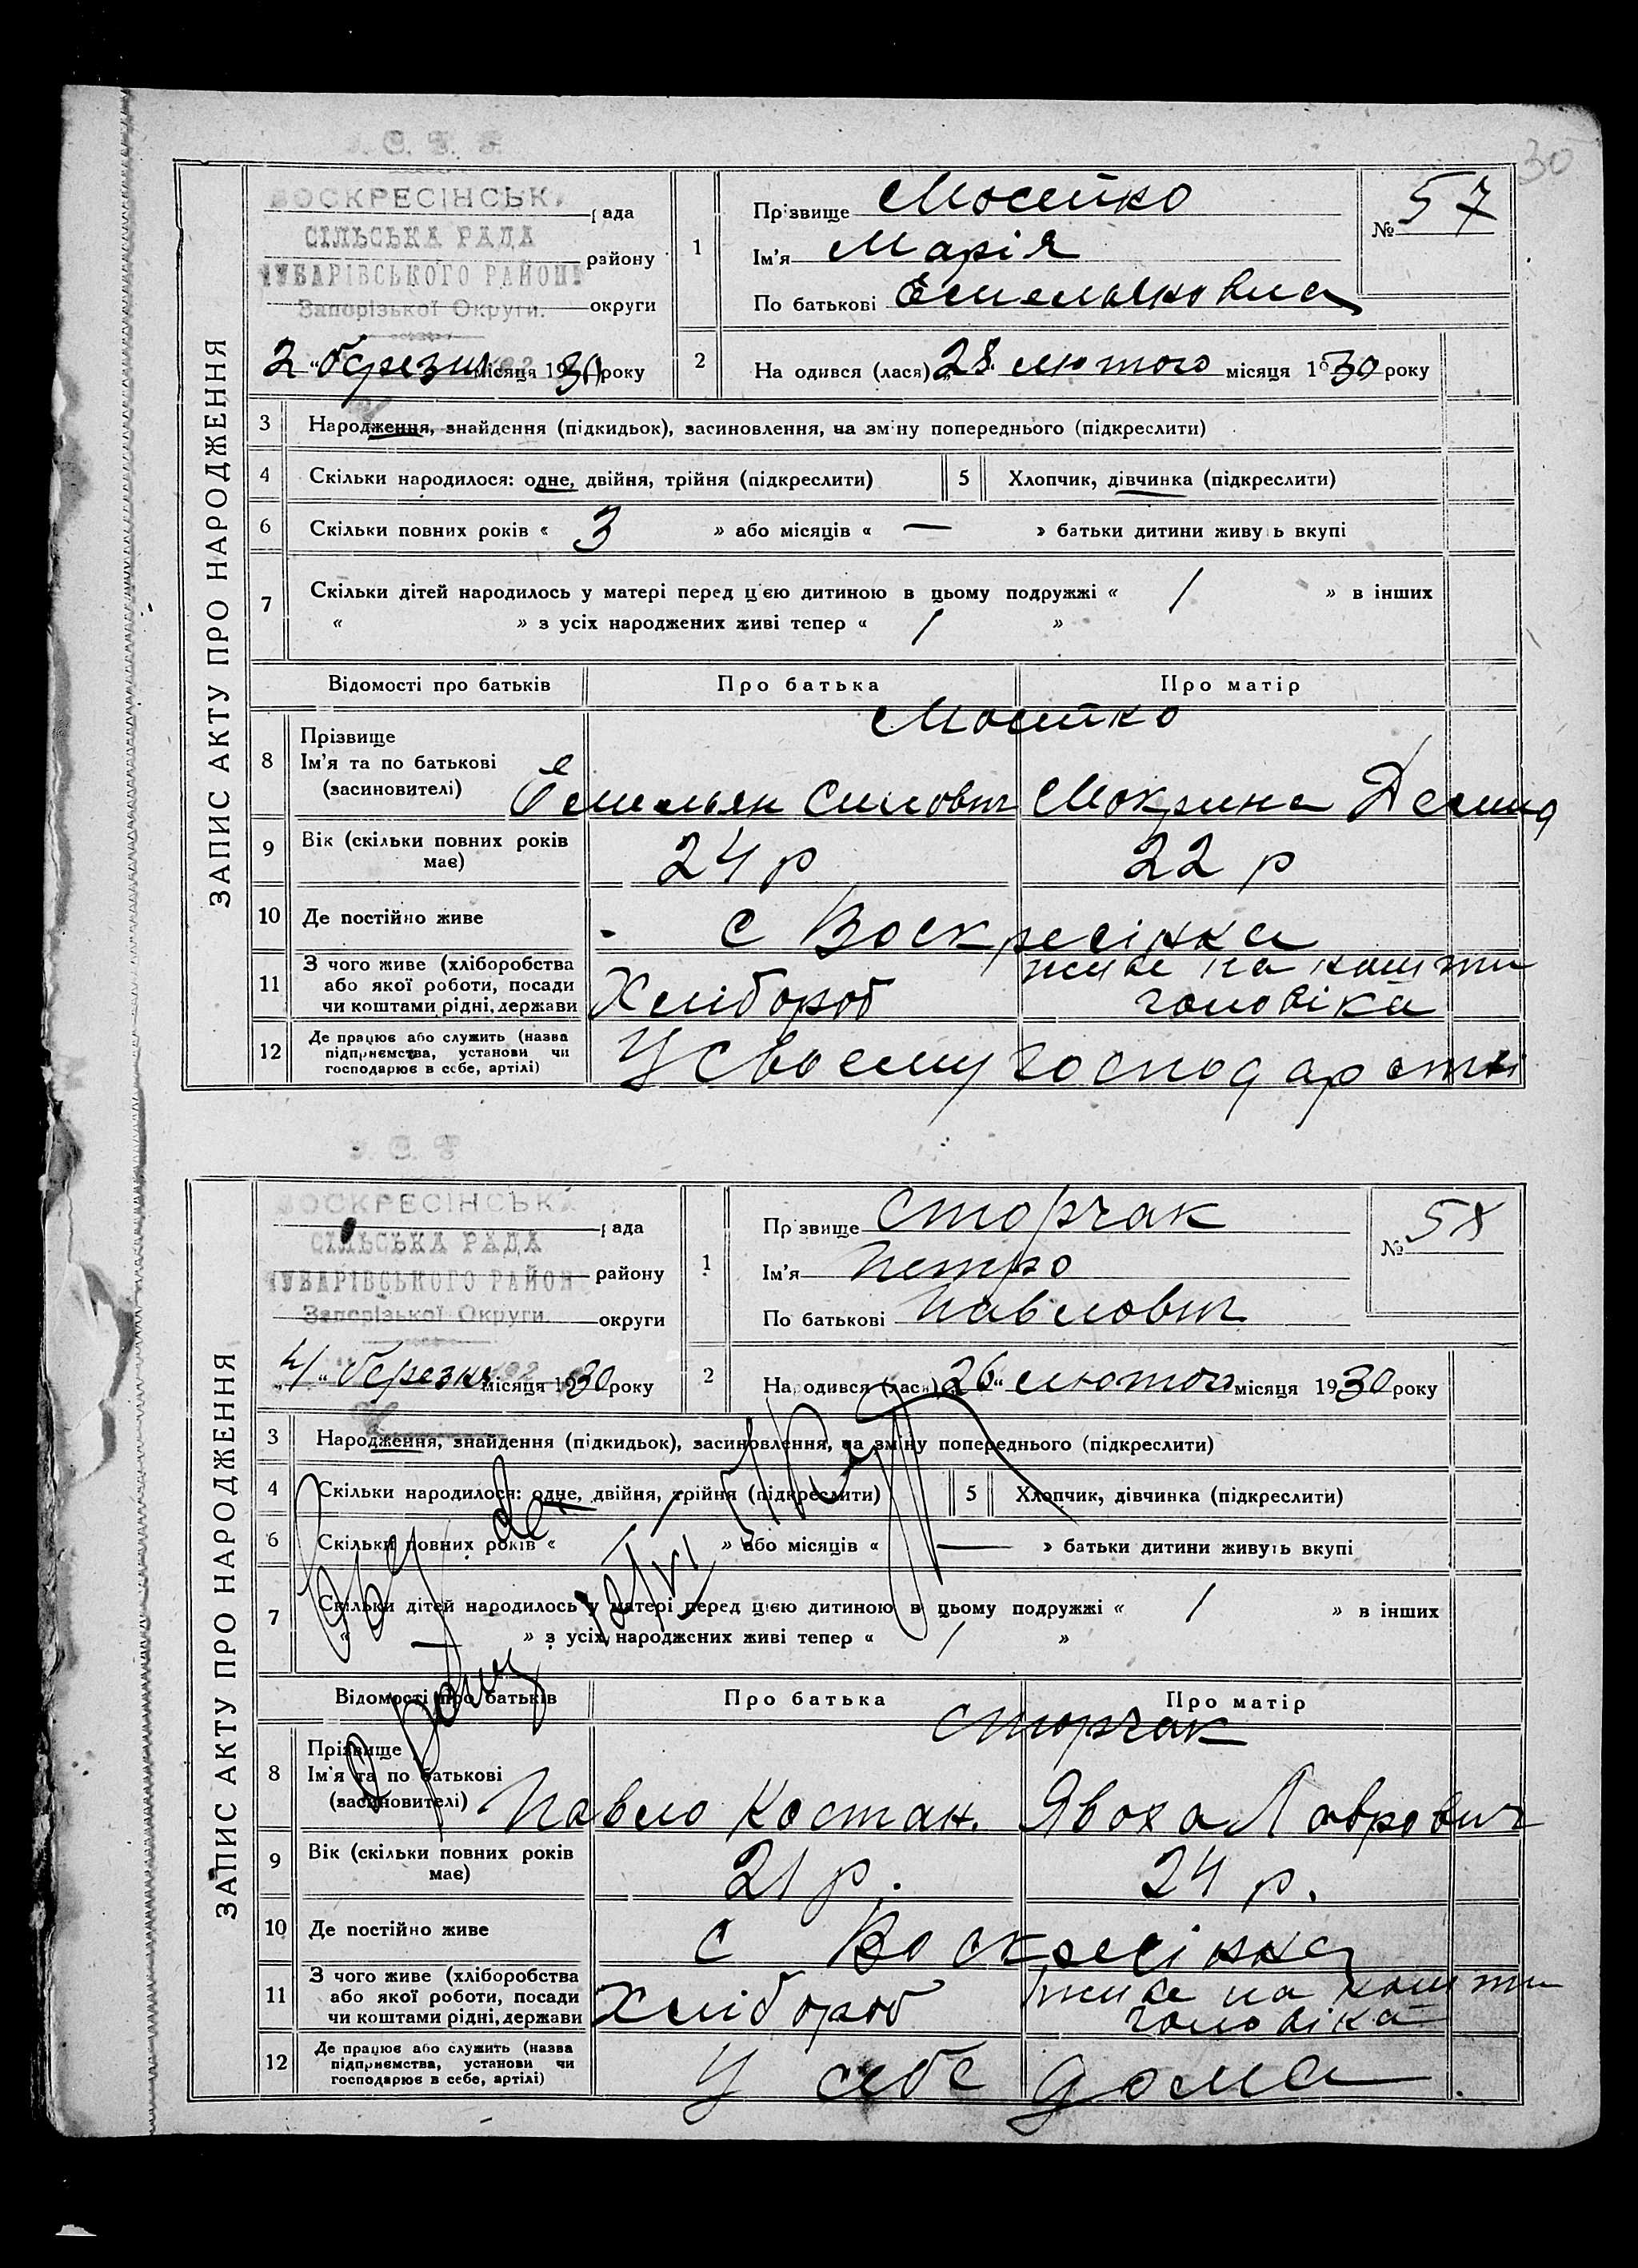 30
ЗАПИС АКТУ ПРО НАРОДЖЕННЯ
ВОСКРЕСІНСЬКА рада
СІЛЬСЬКА РАДА
ЧУБАРІВСЬКОГО РАЙОНУ району
Запорізької Округи. округи
2 " березня місяця 1930 року
1 Прізвище Мосейко
Ім'я Марія
По батькові Емельяновна
№ 57
2 Народився (лася) 28 " лютого місяця 1930 року
3 Народження, знайдення (підкидьок), засиновлення, на зміну попереднього (підкреслити)
4 Скільки народилося: одне, двійня, трійня (підкреслити) 5 Хлопчик, дівчинка (підкреслити)
6 Скільки повних років « 3 » або місяців « — » батьки дитини живуть вкупі
7 Скільки дітей народилось у матері перед цією дитиною в цьому подружжі « 1 » в інших
« » з усіх народжених живі тепер « 1 »
Відомості про батьків Про батька Про матір
8 Прізвище Мосейко
Ім'я та по батькові
(засиновителі) Емельян Силович Мокрина Демид
9 Вік (скільки повних років має) 24 р 22 р
10 Де постійно живе с Воскресінка
11 З чого живе (хліборобства
або якої роботи, посади
чи коштами рідні, держави Хлібороб живе на кошти чоловіка
12 Де працює або служить (назва
підприємства, установи чи
господарює в себе, артілі) У своему господарстві
ЗАПИС АКТУ ПРО НАРОДЖЕННЯ
ВОСКРЕСІНСЬКА рада
СІЛЬСЬКА РАДА
ЧУБАРІВСЬКОГО РАЙОН району
Запорізької Округи. округи
4 " березня місяця 1930 року
1 Прізвище Сторчак
Ім'я Петро
По батькові Павлович
№ 58
2 Народився (лася) 26 " лютого місяця 1930 року
3 Народження, знайдення (підкидьок), засиновлення, на зміну попереднього (підкреслити)
4 Скільки народилося: одне, двійня, трійня (підкреслити) 5 Хлопчик, дівчинка (підкреслити)
6 Скільки повних років « » або місяців « — » батьки дитини живуть вкупі
7 Скільки дітей народилось у матері перед цією дитиною в цьому подружжі « 1 » в інших
« — » з усіх народжених живі тепер « 1 »
Відомості про батьків Про батька Про матір
8 Прізвище Сторчак
Ім'я та по батькові
(засиновителі) Павло Костан. Явоха Лаврович
9 Вік (скільки повних років має) 21 р. 24 р.
10 Де постійно живе с Воскресінка
11 З чого живе (хліборобства
або якої роботи, посади
чи коштами рідні, держави Хлібороб живе на кошти чоловіка
12 Де працює або служить (назва
підприємства, установи чи
господарює в себе, артілі) У себе дома